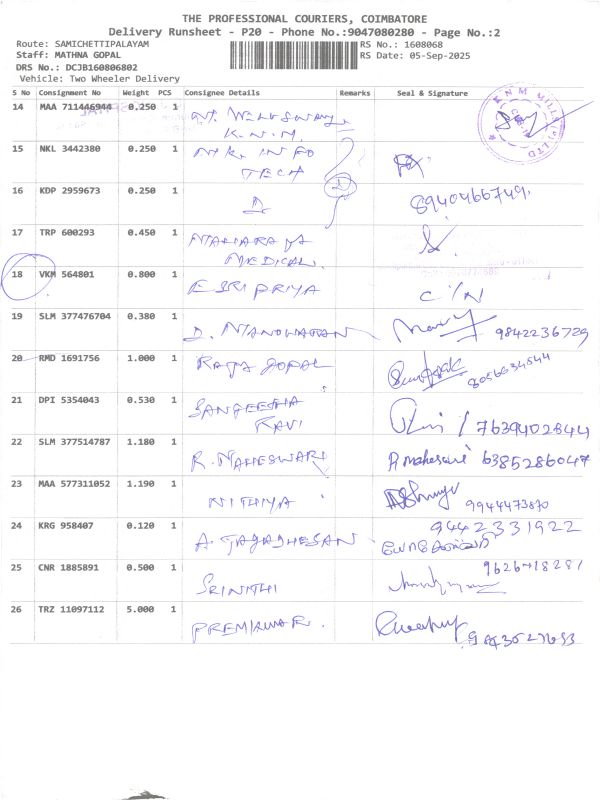 THE PROFESSIONAL COURIERS, COIMBATORE
Delivery Runsheet - P20 - Phone No.:9047080280 - Page No.:2
Route: SAMICHETTIPALAYAM
RS No.: 1608068
Staff: MATHNA GOPAL
RS Date: 05-Sep-2025
DRS No.: DCJB160806802
Vehicle: Two Wheeler Delivery
S No Consignment No Weight PCS Consignee Details Remarks Seal & Signature
14 MAA 711446944 0.250 1
K.N.M
KNM MILLS (P) LTD
15 NKL 3442380 0.250 1 INFO
TECH
16 KDP 2959673 0.250 1 D 8940466749
17 TRP 600293 0.450 1
MEDICAL
18 VKM 564801 0.800 1 ESRI PRIYA C/N
19 SLM 377476704 0.380 1 D. MANOHARAN 9842236729
20 RMD 1691756 1.000 1 RAJA GOPAL 8056634544
21 DPI 5354043 0.530 1 SANGEETHA
RAVI 7639402844
22 SLM 377514787 1.180 1 R. MAHESWARI R maheswari 6385286047
23 MAA 577311052 1.190 1 NITHIYA 9944473870
24 KRG 958407 0.120 1 A. 9442331922
25 CNR 1885891 0.500 1 SRINITHI 9626418281
26 TRZ 11097112 5.000 1 PREMKUMAR.